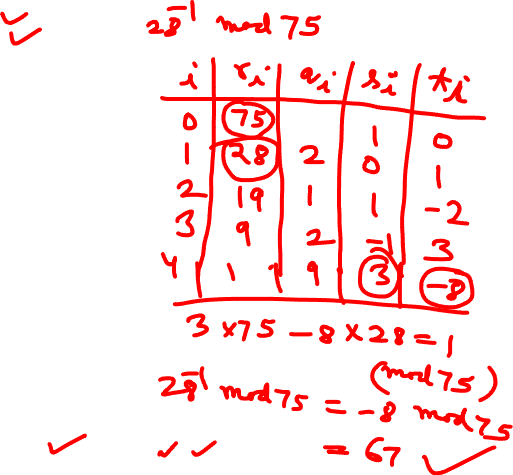 28⁻¹ mod 75
i rᵢ qᵢ sᵢ tᵢ
0 75 1 0
1 28 2 0 1
2 19 1 1 -2
3 9 2 -1 3
4 1 9 3 -8
3 × 75 - 8 × 28 = 1
(mod 75)
28⁻¹ mod 75 = -8 mod 75
= 67